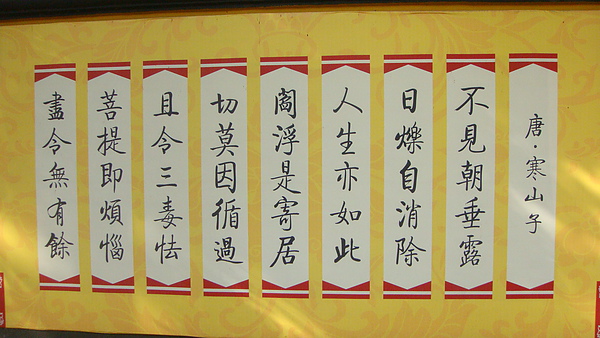 唐·寒山子
不見朝垂露
日爍自消除
人生亦如此
閻浮是寄居
切莫因循過
且令三毒怯
菩提即煩惱
盡令無有餘